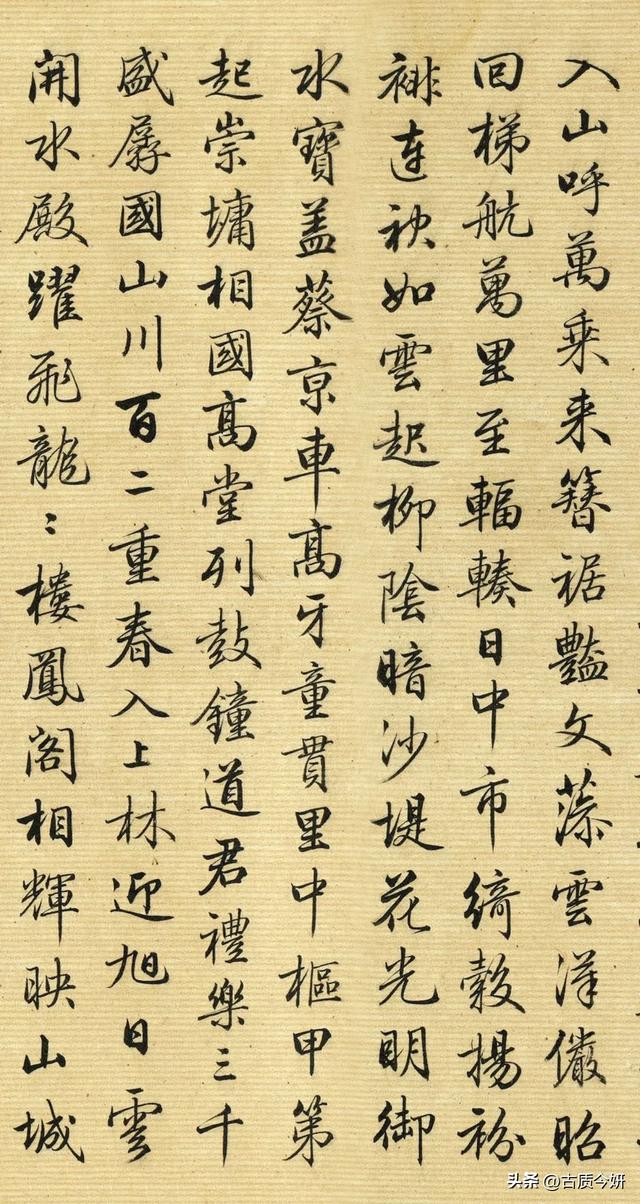 入山呼萬乘来簪裾豔文藻雲漢儼昭
回梯航萬里至輻輳日中市綺縠揚衯
裶連袂如雲起柳陰暗沙堤花光明御
水寶盖蔡京車高牙童貫里中樞甲第
起崇墉相國高堂列鼓鐘道君禮樂三千
盛孱國山川百二重春入上林迎旭日雲
開水殿躍飛龍〻樓鳳閣相輝映山城
头条 @古质今妍